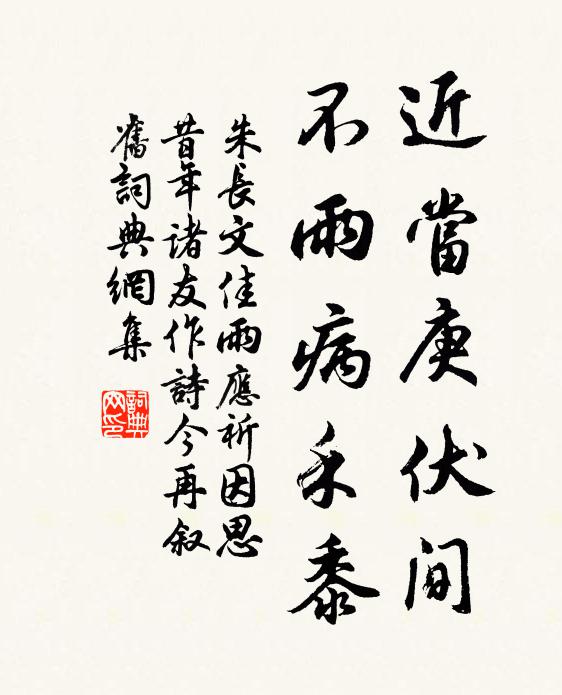 近當庚伏間
不雨病禾黍
朱長文佳雨應祈因思
昔年諸友作詩今再叙
舊詞典網集
詞典网印